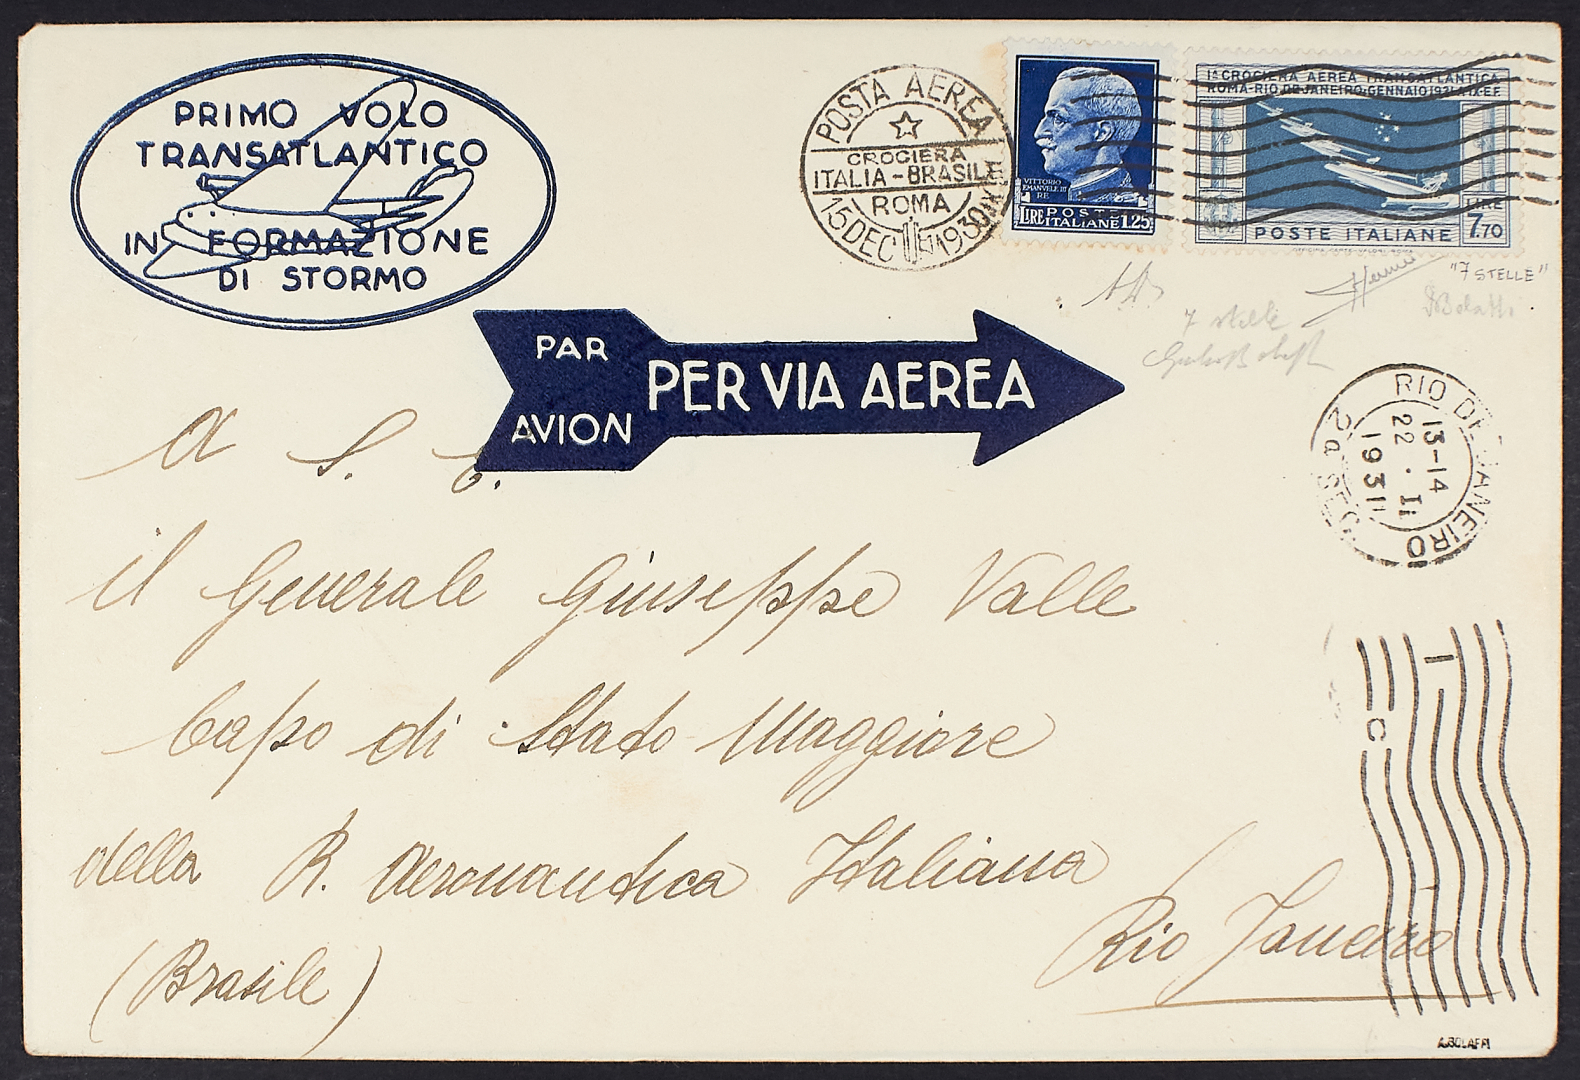 PRIMO VOLO
TRANSATLANTICO
IN FORMAZIONE
DI STORMO
POSTA AEREA
CROCIERA
ITALIA-BRASILE
ROMA
15 DEC 1930 IX
VITTORIO
EMANVELE III
RE
LIRE POSTE 1,25
ITALIANE
1ª CROCIERA AEREA TRANSATLANTICA
ROMA-RIO DE JANEIRO-GENNAIO 1931 A.IX.E.F.
LIRE
POSTE ITALIANE 7.70
"7 STELLE"
7 stelle
PAR
AVION
PER VIA AEREA
RIO DE JANEIRO
13-14
22.II
1931
2a SEC
A S. E.
il Generale Giuseppe Valle
Capo di Stato Maggiore
della R. Aeronautica Italiana
Rio Janeiro
(Brasile)
C
A.BOLAFFI